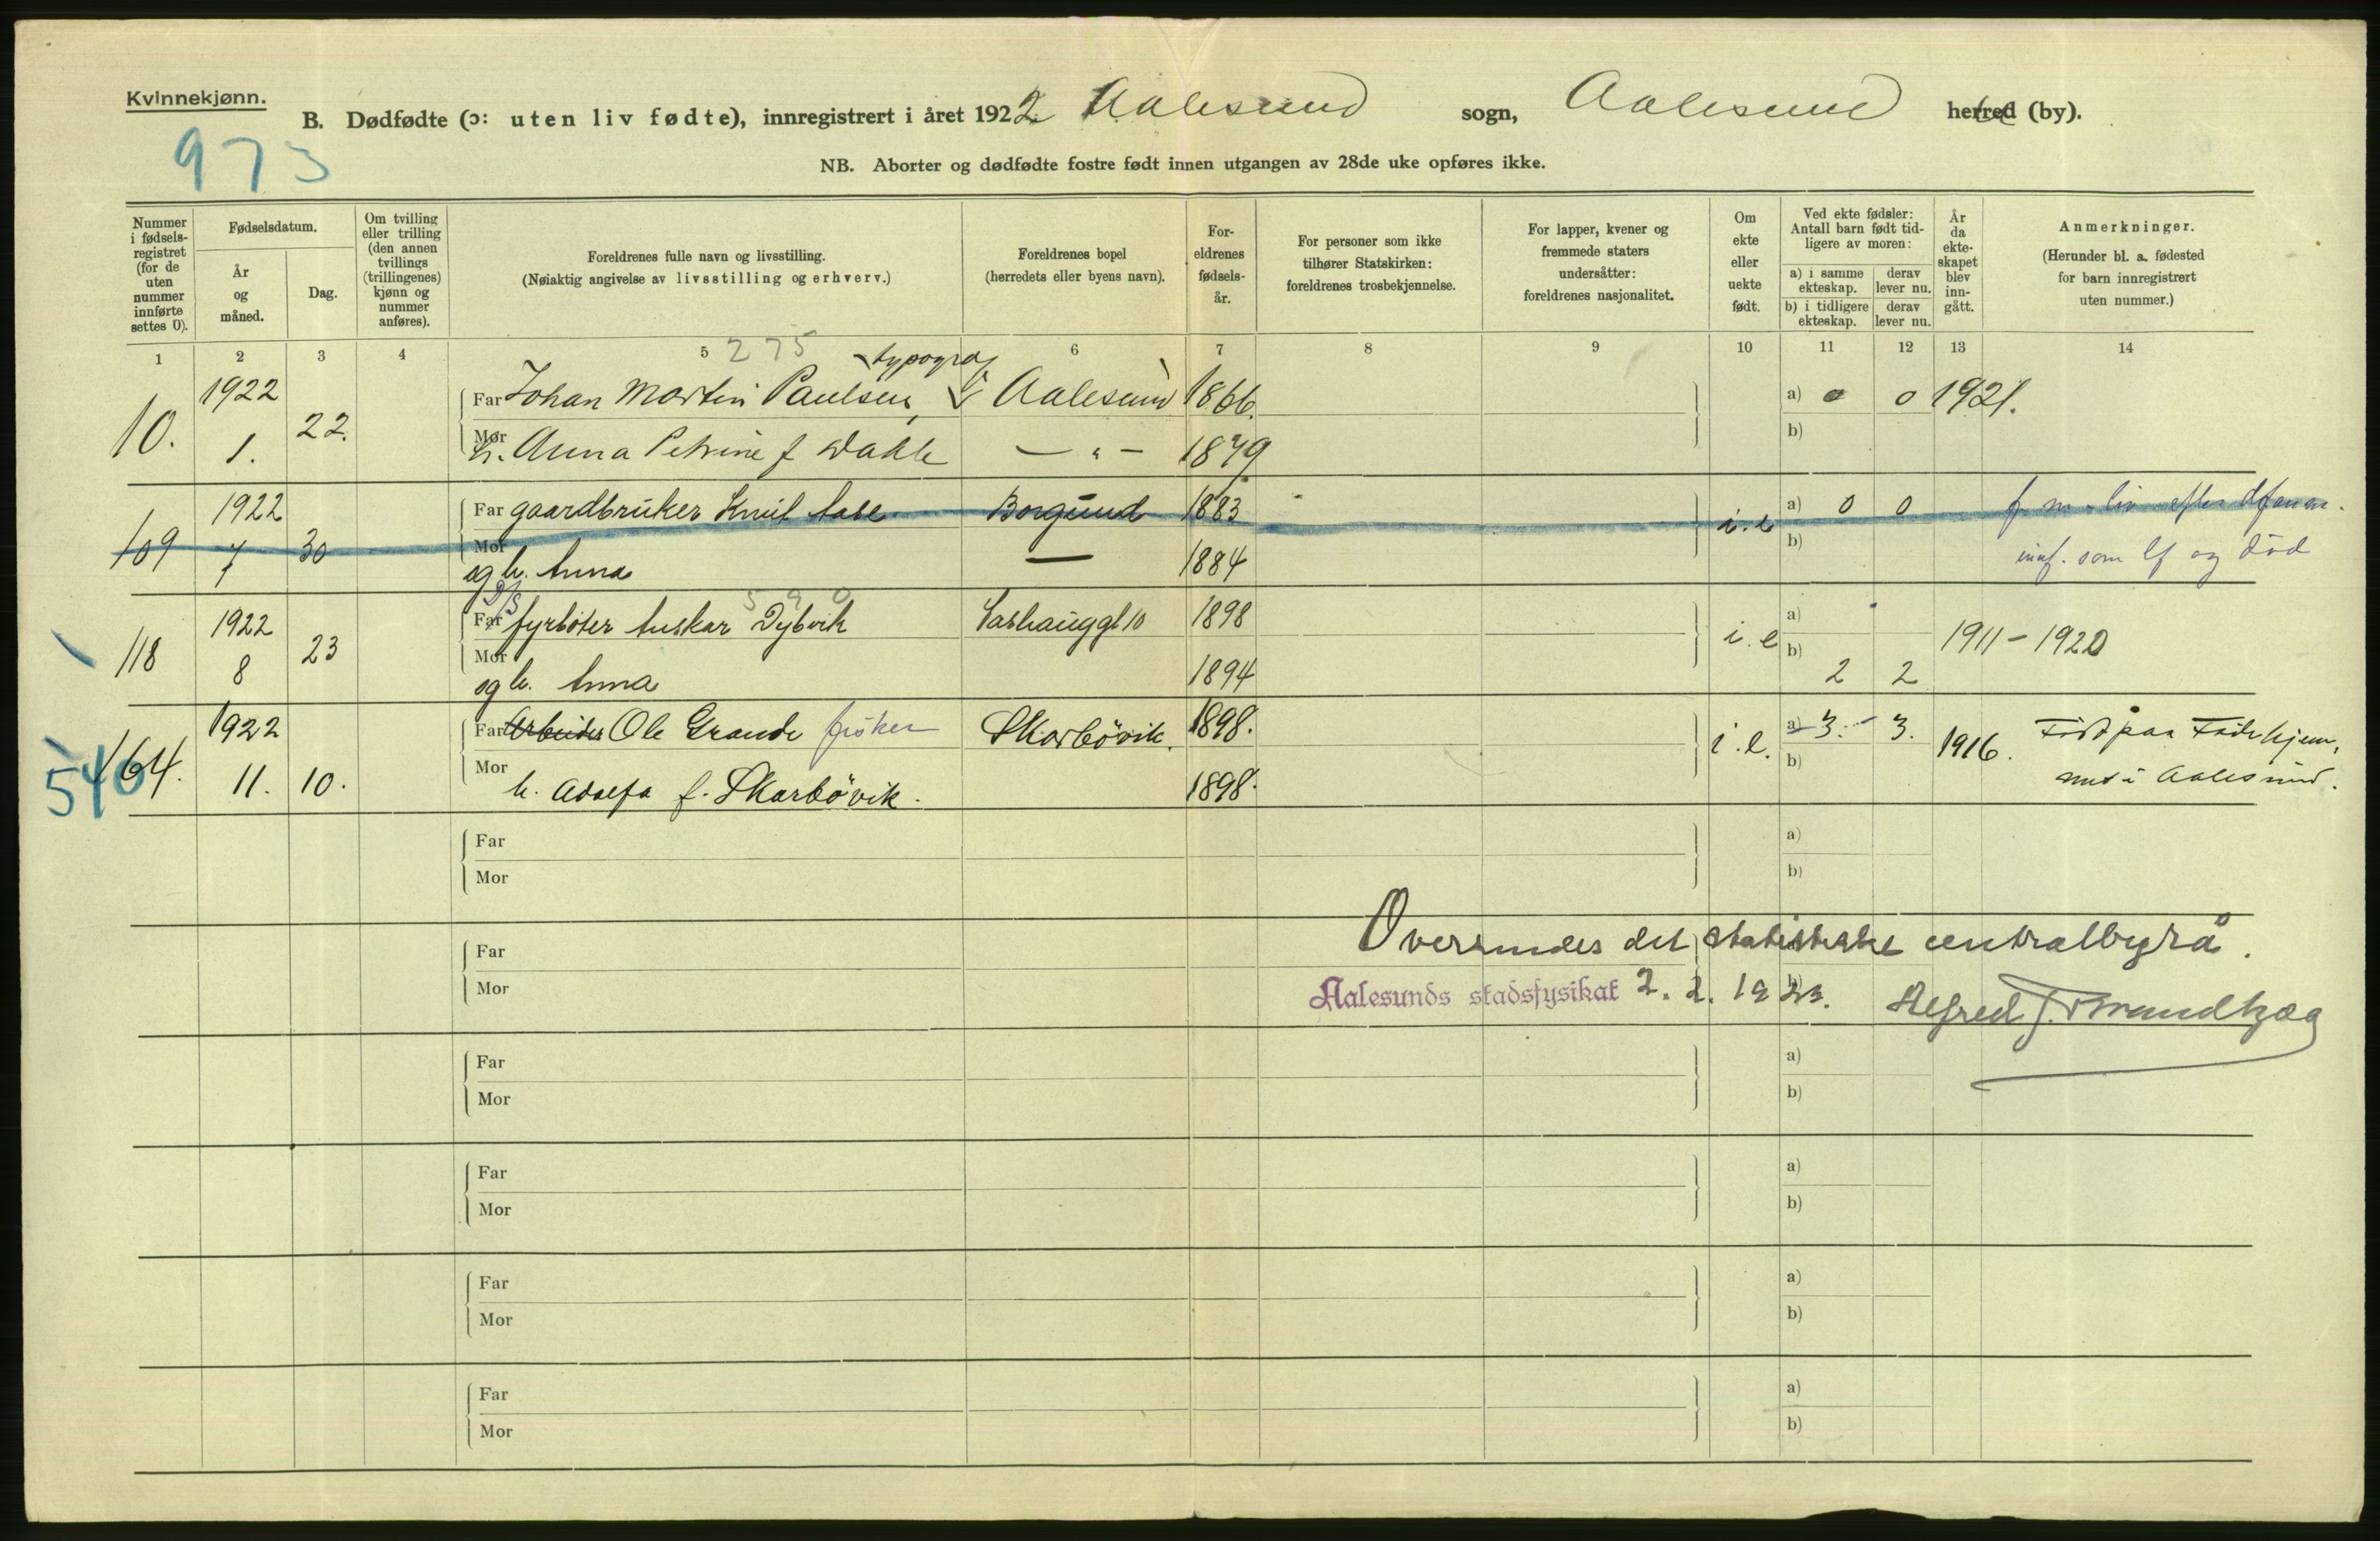 Kvinnekjønn.
B. Dødfødte (ɔ: uten liv fødte), innregistrert i året 1922 Aalesund sogn, Aalesund herred (by).
973
NB. Aborter og dødfødte fostre født innen utgangen av 28de uke opføres ikke.
Nummer i fødsels-registret (for de uten nummer innførte settes 0).
Fødselsdatum.
År og måned.
Dag.
Om tvilling eller trilling (den annen tvillings (trillingenes) kjønn og nummer anføres).
Foreldrenes fulle navn og livsstilling.
(Nøiaktig angivelse av livsstilling og erhverv.)
Foreldrenes bopel
(herredets eller byens navn).
For-eldrenes fødsels-år.
For personer som ikke tilhører Statskirken: foreldrenes trosbekjennelse.
For lapper, kvener og fremmede staters undersåtter: foreldrenes nasjonalitet.
Om ekte eller uekte født.
Ved ekte fødsler: Antall barn født tid-ligere av moren:
a) i samme ekteskap.
derav lever nu.
b) i tidligere ekteskap.
derav lever nu.
År da ekte-skapet blev inn-gått.
Anmerkninger.
(Herunder bl. a. fødested for barn innregistrert uten nummer.)
1 2 3 4 5 275 6 7 8 9 10 11 12 13 14
typograf
10. 1922 1. 22. Far Johan Martin Paulsen, Aalesund 1866. a) 0 0 1921.
Mor h. Anna Petrine f Dahle — " — 1879 b)
109 1922 7 30 Far gaardbruker Knut Aase Borgund 1883 i.e a) 0 0
Mor og h. Anna — 1884 b) innf. som lf og død
590
118 1922 8 23 Far D/S fyrbøter Auskar Dybvik 10 1898 i.e a) 1911 - 1920
Mor og h. Anna 1894 b) 2 2
540
164. 1922 11. 10. Far Arbeider Ole Grande fisker Skarbövik. 1898. i.e. a) 3. 3. 1916. Född paa Fødehjem,
Mor h. Adolfa f. Skarbövik. 1898. b) met i Aalesund.
Far a)
Mor b)
Oversendes det statistiske centralbyrå.
Far
Mor b)
Aalesunds stadsfysikat 2. 2. 1923. Alfred J. Brandtzæg
Far a)
Mor b)
Far a)
Mor b)
Far a)
Mor b)
Far a)
Mor b)